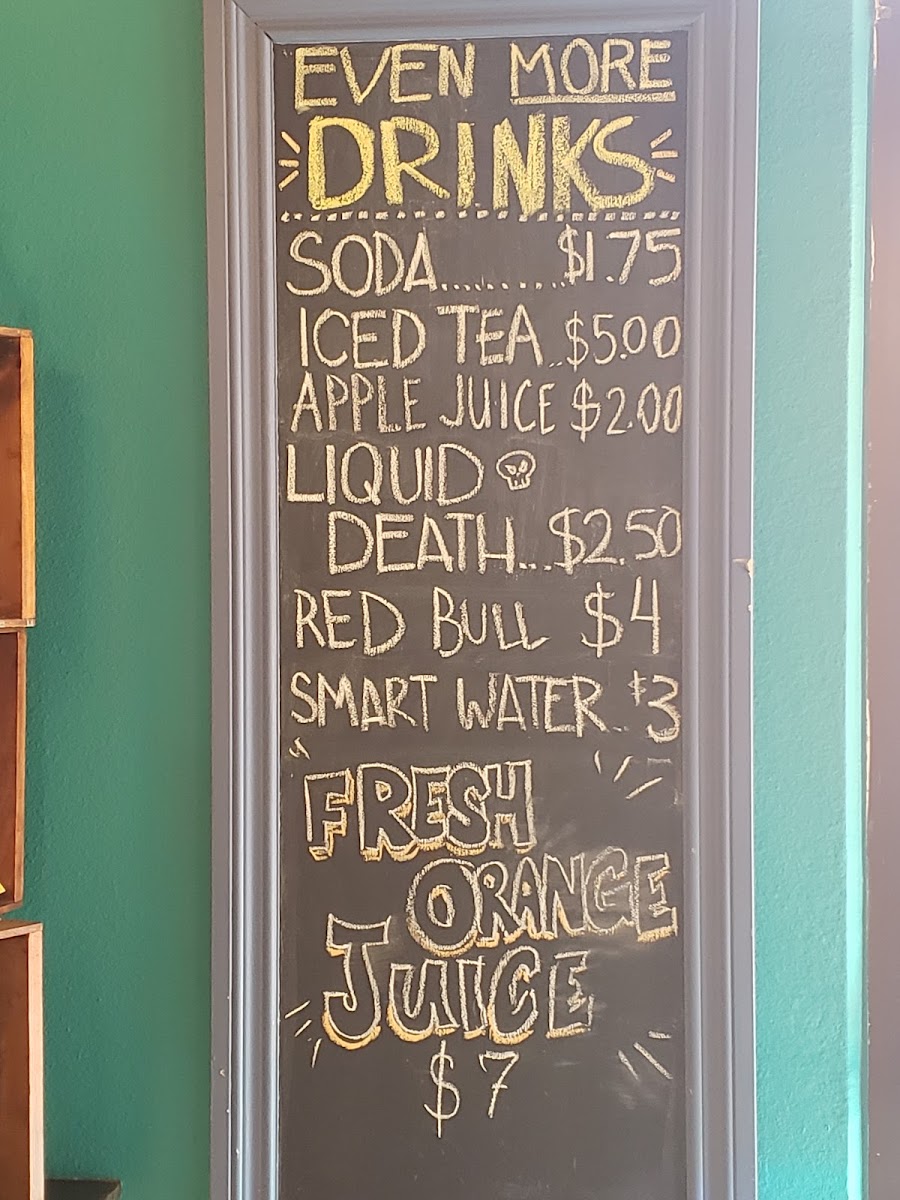 EVEN MORE
DRINKS
SODA.........$1.75
ICED TEA..$5.00
APPLE JUICE $2.00
LIQUID
DEATH...$2.50
RED BULL $4
SMART WATER..$3
FRESH
ORANGE
JUICE
$7